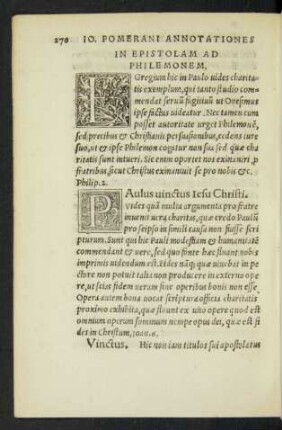 270 IO. POMERANI ANNOTATIONES
IN EPISTOLAM AD
PHILEMONEM.
EGregium hic in Paulo uides charita-
tis exemplum, qui tanto studio com-
mendat seruũ fugitiuũ ut Onesimus
ipse fictus uideatur. Nec tamen cum
posset autoritate urget Philemonẽ,
sed precibus & Christianis persuasionibus, cedens iure
suo, ut & ipse Philemon cogitur non sua sed quæ cha
ritatis sunt intueri. Sic enim oportet nos exinaniri, ꝓ
fratribus, sicut Christus exinaniuit se pro nobis &c.
Philip. 2.
PAulus uinctus Iesu Christi.
uides quã multa argumenta pro fratre
inueniat uera charitas, quæ credo Paulũ
pro seipso in simili causa non fuisse scri
pturum. Sunt qui hic Pauli modestiam & humanitatẽ
commendant & uere, sed quo fonte hæc fluant, nobis
imprimis uidendum est. Vides nãq; quæ uiuit hic in pe
ctore non potuit talis non producere in externo ope
re, ut scias fidem ueram sine operibus bonis non esse.
Opera autem bona uocat scriptura officia charitatis
proximo exhibita, quæ fiunt ex uno opere quod est
omnium operum summum nempe opus dei, quæ est fi
des in Christum, Ioan. 6.
Vinctus. Hic non iam titulos sui apostolatus